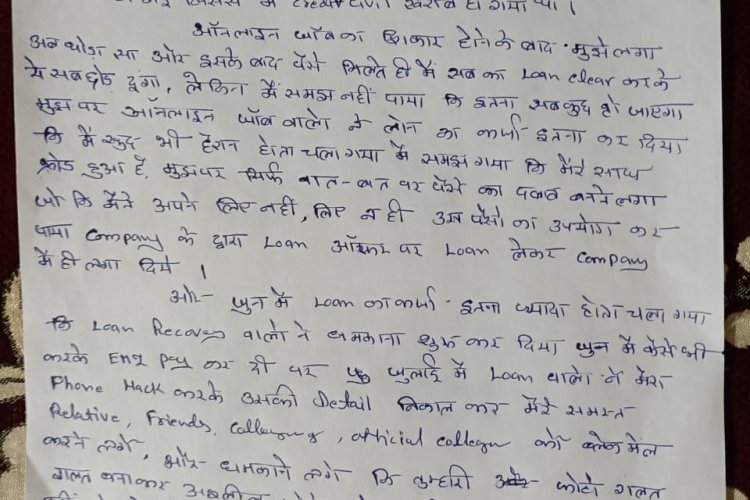 खराब हो गया था।
ऑनलाइन जॉब का शिकार होने के बाद मुझे लगा
अब थोडा सा और इसके बाद पैसे मिलते ही मैं सब का Loan clear करके
ये सब छोड दूंगा, लेकिन मैं समझ नहीं पाया कि इतना सबकुछ हो जाएगा
मुझ पर ऑनलाइन जॉब वालो ने लोन का कर्जा इतना कर दिया
कि मैं खुद भी हैरान होता चला गया मैं समझ गया कि मेरे साथ
फ्रोड हुआ है, मुझपर सिर्फ बात-बात पर पैसे का दबाव बनने लगा
जो कि मैंने अपने लिए नहीं, लिए न ही उस पैसो का उपयोग कर
पाया Company के द्वारा Loan ऑफर पर Loan लेकर Company
में ही लगा दिये।
और जुन में Loan का कर्जा इतना ज्यादा होता चला गया
कि Loan Recovery वालो ने धमकाना शुरू कर दिया जुन में कैसे भी
करके EMI Pay कर दी पर जुलाई में Loan वालो ने मेरा
Phone Hack करके उसकी Detail निकाल कर मेरे समस्त
Relative, Friends, को ब्लेकमेल
करने लगे, और धमकाने लगे कि तुम्हारी फोटो गलत
गलत बनाकर अश्लील